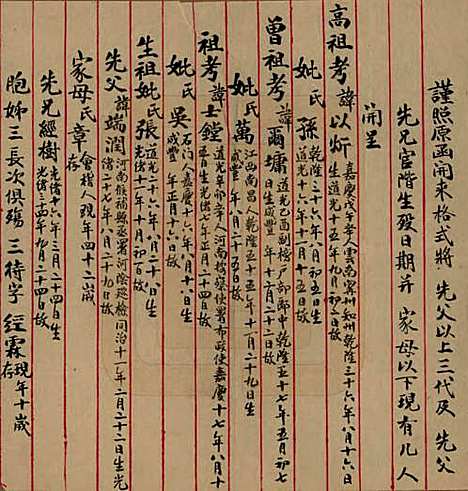 謹照原函開來格式將 先父以上三代及 先父
先兄官階生歿日期并 家母以下現有几人
開呈
高祖考諱以炘 嘉慶戊午舉人雲南甯州知州乾隆三十六年八月十六日生道光十五年九月初二日故
妣氏孫 乾隆三十六年八月初五日生道光十六年八月十五日故
曾祖考諱爾墉 道光乙酉副榜户部郎中乾隆五十七年五月初七日生咸豐 年十二月二十二日故
妣氏萬 江西南昌人乾隆五十五年十一月二十九日生咸豐 年八月二十五日故
祖考諱士鏜 道光辛卯舉人河南按察使署布政使嘉慶十七年八月十五日生光緒七年正月二十四日故
妣氏吳 石門人嘉慶十六年八月十八日生咸豐 年正月十六日故
生祖妣氏張 道光二十六年八月二十八日生光緒二十一年十月初一日故
先父諱端潤 河南候補縣丞署河陰巡檢同治十一年二月二十二日生光緒二十七年八月二十九日故
家母氏章 會稽人現年四十二歲存
先兄經樹 光緒二十六年三月二十四日生光緒三十四年九月二十四日故
胞姊三長次俱殤三待字 經霖 現年十歲存